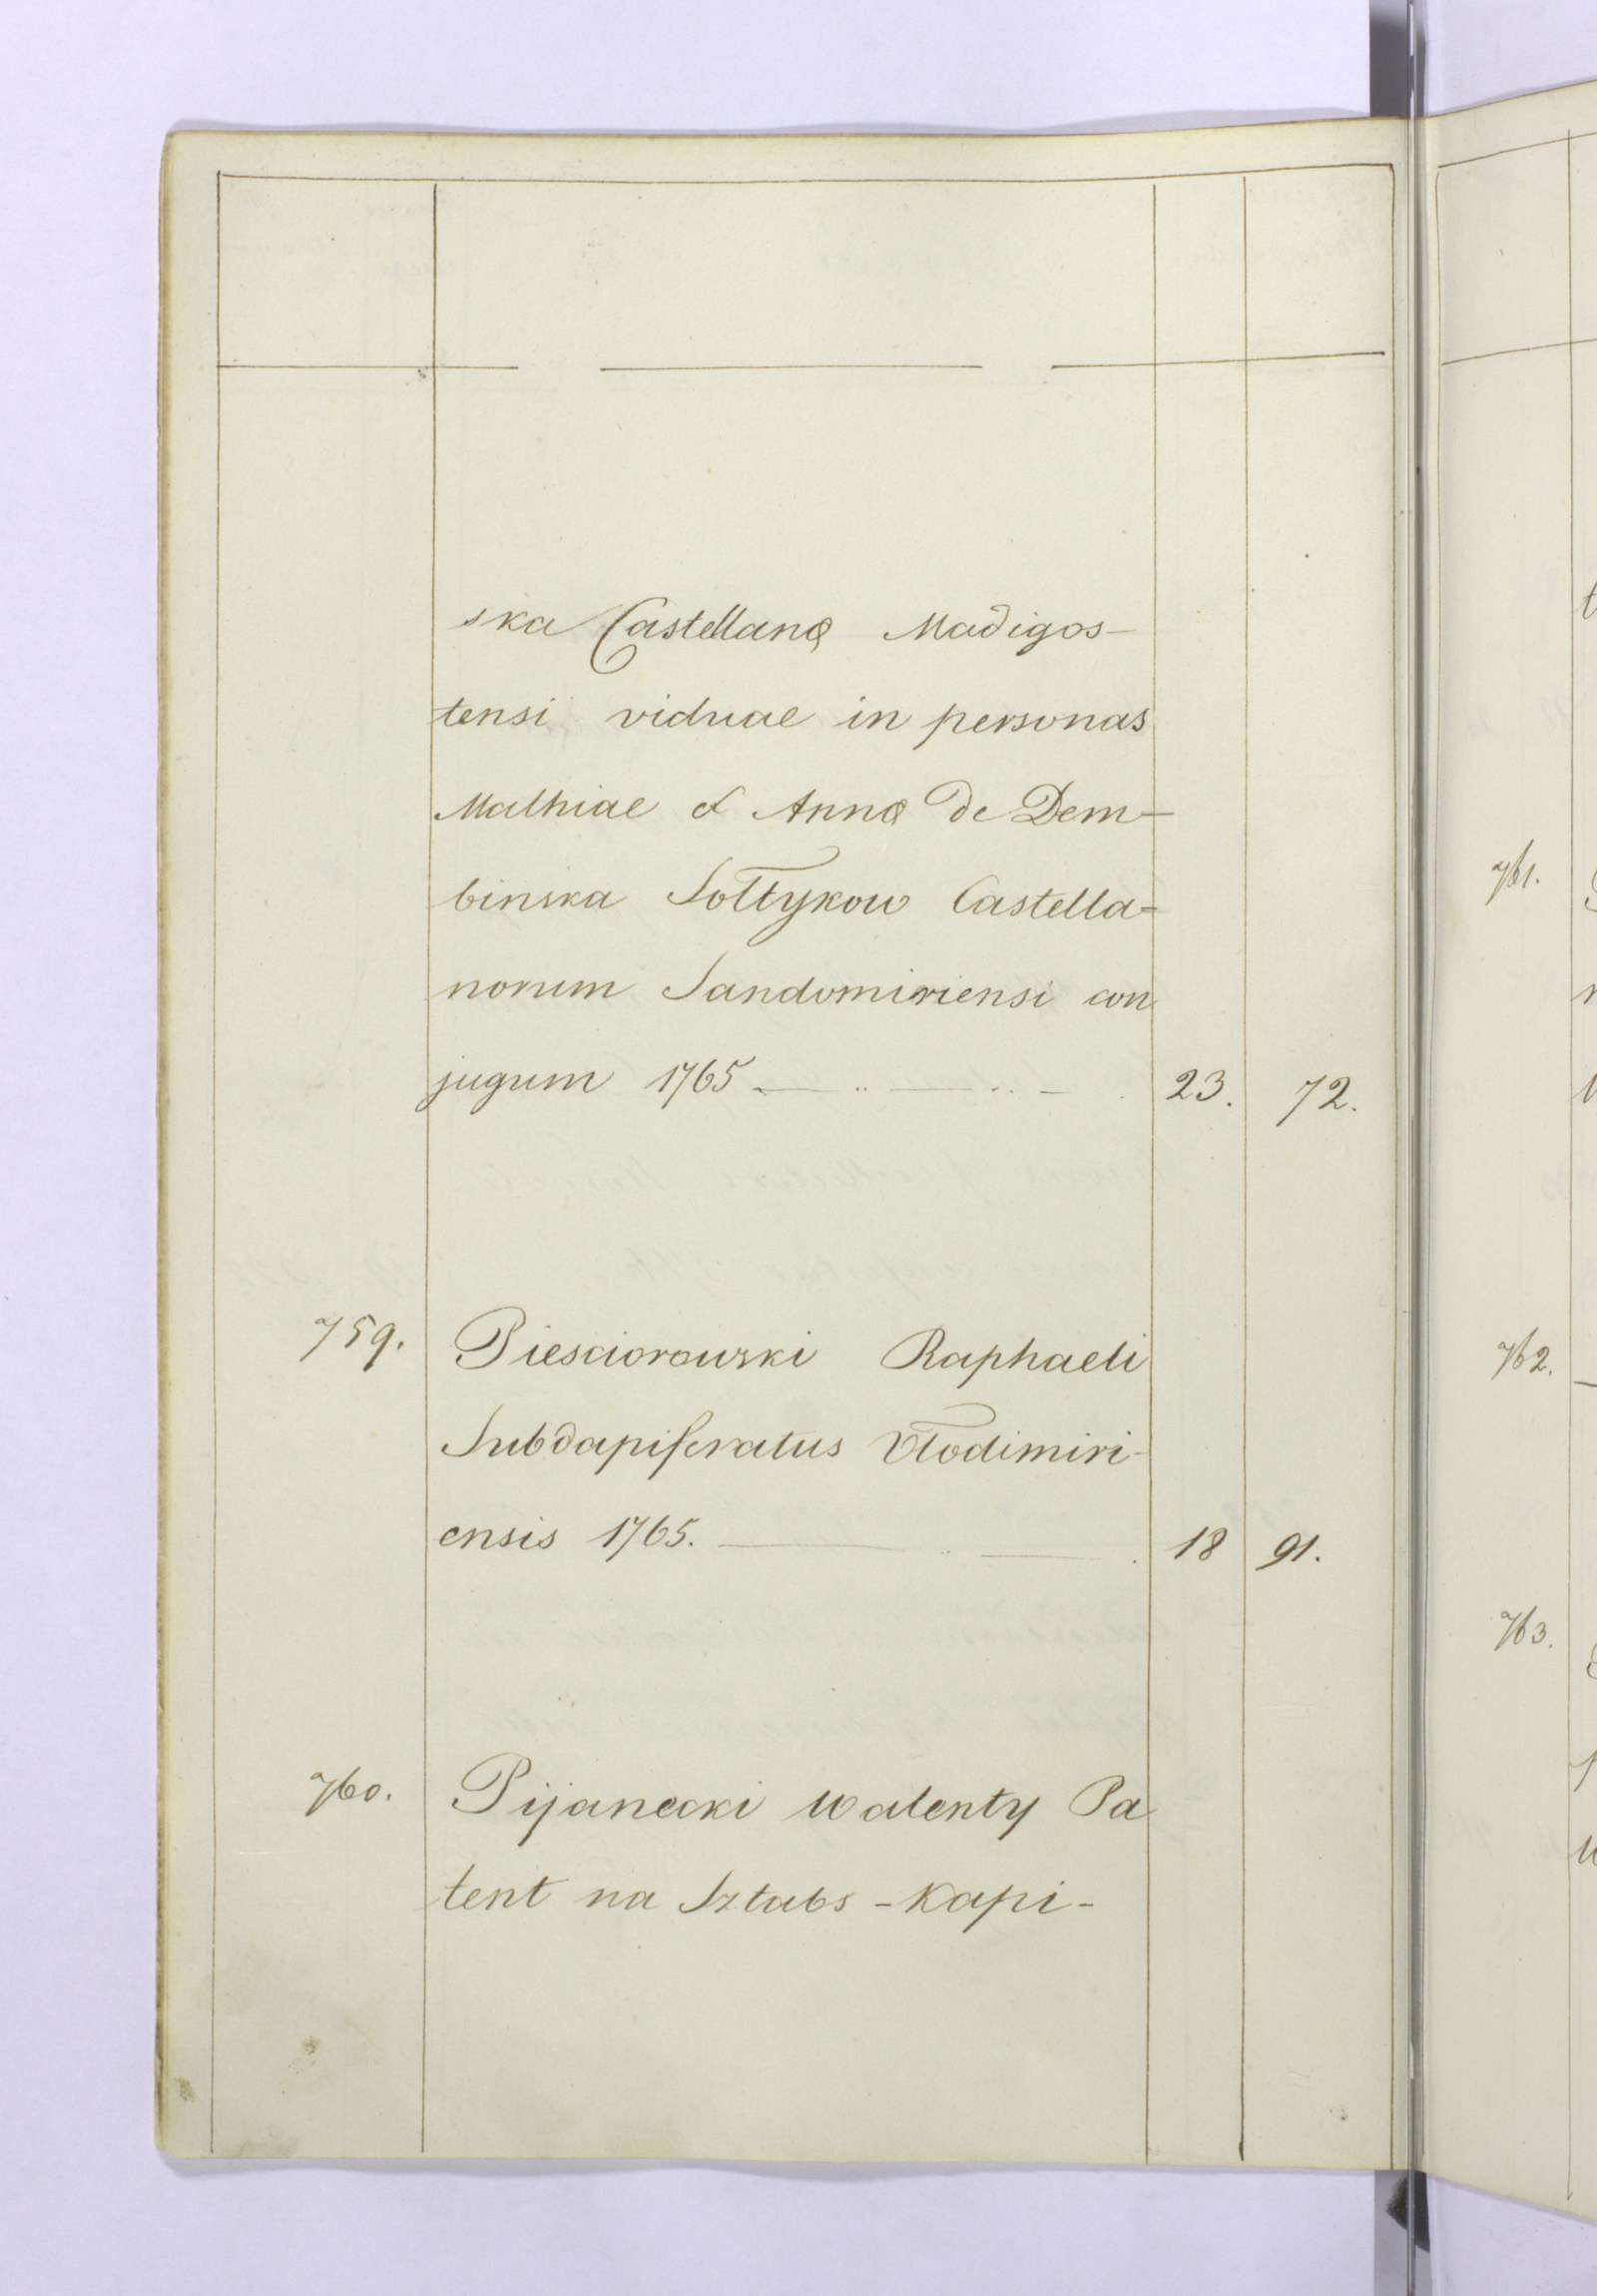 ska Castellanę Madigos-
tensi viduae in personas
Mathiae et Annę de Dem-
binska Sołtykow Castella=
norum Sandomiriensi con
jugum 1765 23. 72.
759. Piesciorowski Raphaeli
Subdapiferatus Vłodimiri-
ensis 1765. 18 91.
760. Pijanecki Walenty Pa
tent na Sztabs-Kapi-
761.
762.
763.